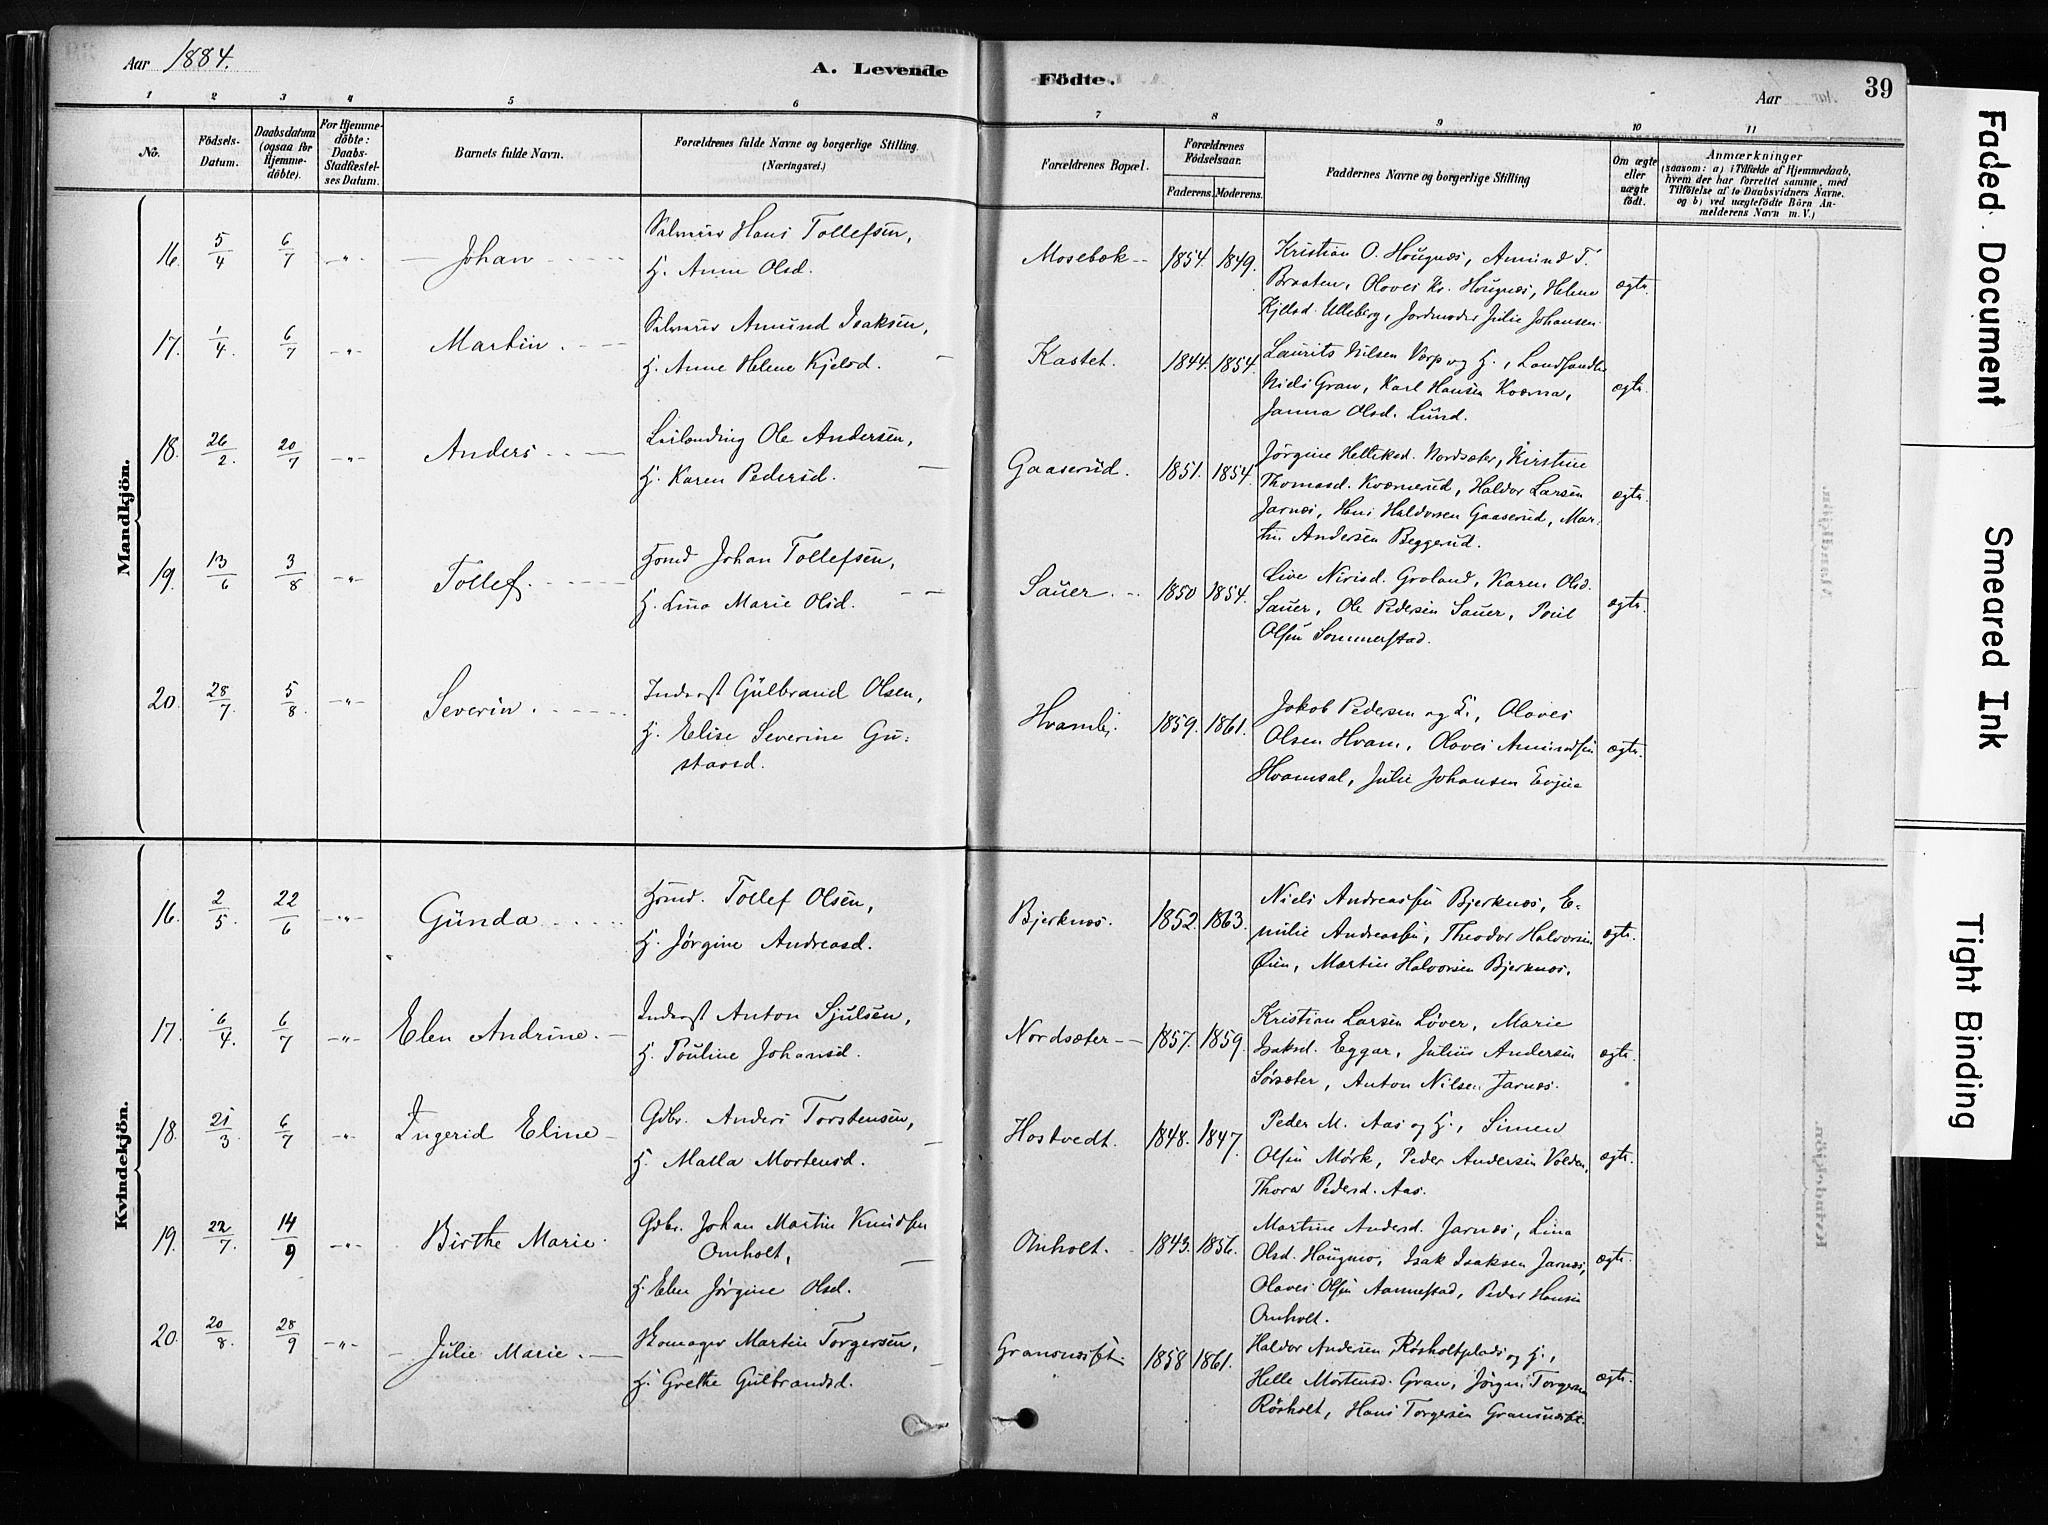 Aar 1884.
A. Levende
Födte.
Aar
39
1 2 3 4 5 6 7 8 9 10 11
No.
Födsels-
Datum.
Daabsdatum
(ogsaa for
Hjemme-
döbte).
For Hjemme-
döbte:
Daabs-
Stadfæstel-
ses Datum.
Barnets fulde Navn.
Forældrenes fulde Navne og borgerlige Stilling.
(Næringsvei.)
Forældrenes Bopæl.
Forældrenes
Födselsaar.
Faderens. Moderens.
Faddernes Navne og borgerlige Stilling
Om ægte
eller
uægte
födt.
Anmærkninger
(saasom: a) i Tilfælde af Hjemmedaab,
hvem der har forrettet samme, med
Tilföielse af to Daabsvidners Navne.
og b) ved uægtefödte Börn An-
melderens Navn m. V.)
Mandkjön.
16. 5/4 6/7 -"- Johan
Selveier Hans Tollefsen,
H. Anne Olsd.
Mosebæk 1854. 1849.
Kristian O. Hougnæs, Amund T.
Braaten, Olaves Kr. Hougnæs, Helene
Kjelsd. Ulleberg, Jordmoder Julie Johansen
ægte.
17. 1/4. 6/7 -"- Martin.
Selveier Amund Isaksen,
H. Anne Helene Kjelsd.
Kastet. 1844. 1854.
Laurits Nilsen Vorp og H., Landhandler
Niels Grav, Karl Hansen Kværna,
Janna Olsd. Lund.
ægte.
18. 26/2. 20/7 -"- Anders
Leilending Ole Andersen,
H. Karen Pedersd.
Gaaserud. 1851. 1854.
Jørgine Helliksd. Nordsæter, Kirstine
Thomasd. Kværnerud, Haldor Larsen
Jarnæs, Hans Haldorsen Gaaserud, Mar-
tin Andersen Beggerud.
ægte.
19. 13/6 3/8 -"- Tollef.
Hsmd Johan Tollefsen,
H. Lina Marie Olsd.
Sauer. 1850 1854.
Live Nirisd. Groland, Karen Olsd.
Sauer, Ole Pedersen Sauer, Poul
Olsen Sommerstad.
ægte.
20. 28/7. 5/8. -"- Severin.
Inderst Gulbrand Olsen,
H. Elise Severine Gu-
stavsd.
1859. 1861.
Jakob Pedersen og H., Olaves
Olsen Hvam, Olaves Amundsen
Hvamsal, Julie Johansen Evjua
ægte.
Kvindekjön.
16. 2/5. 22/6 -"- Gunda
Hsmd. Tollef Olsen,
H. Jørgine Andreasd.
Bjerknæs. 1852. 1863.
Niels Andreassen Bjerknæs, E-
milie Andreassen, Theodor Halvorsen
Øien, Martin Halvorsen Bjerknæs.
ægte.
17. 6/4. 6/7 -"- Elen Andrine.
Inderst Anton Sjulsen,
H. Pouline Johansd.
Nordsæter 1857. 1859.
Kristian Larsen Løver, Marie
Isaksd. Eggar, Julius Andersen
Sørsæter, Anton Nilsen Jarnæs.
ægte.
18. 21/3 6/7 -"- Ingerid Eline
Gdbr. Anders Torstensen,
H. Malla Mortensd.
Hostvedt. 1848. 1847.
Peder M. Aas og H., Simen
Olsen Mørk, Peder Andersen Volden,
Thora Pedersd. Aas.
ægte.
19. 22/7. 14/9 -"- Birthe Marie.
Gdbr. Johan Martin Knudsen
Omholt,
H. Elen Jørgine Olsd.
Omholt. 1843. 1856.
Martine Andersd. Jarnæs, Lina
Olsd. Haugmo, Isak Isaksen Jarnæs,
Olaves Olsen Aannestad, Peder Hansen
Omholt.
ægte.
20. 20/8. 28/9 -"- Julie Marie.
Skomager Martin Torgersen,
H. Grethe Gulbrandsd.
1858 1861.
Haldor Andersen Røsholtplads og H.,
Helle Mortensd. Grav, Jørgn Torgersen
Røsholt, Hans Torgersen
ægte.
Faded Document
Smeared Ink
Tight Binding